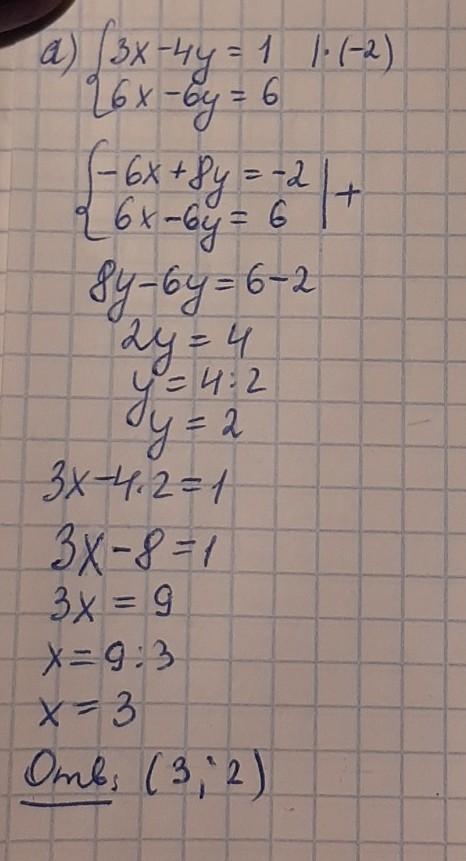 а) {3x-4y=1 |·(-2)
{6x-6y=6
{-6x+8y=-2 | +
{6x-6y=6
8y-6y=6-2
2y=4
y=4:2
y=2
3x-4·2=1
3x-8=1
3x=9
x=9:3
x=3
Отв: (3; 2)